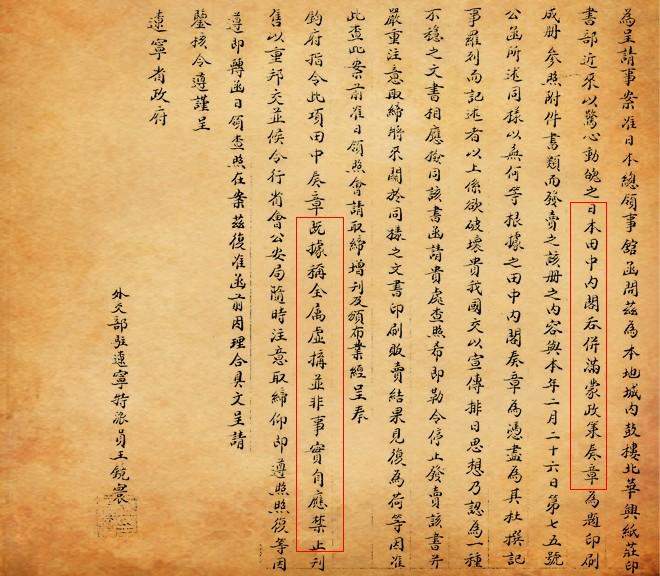 為呈請事案准日本總領事館函開茲為本地城內鼓樓北華興紙莊印
書部近來以驚心動魄之日本田中內閣吞併滿蒙政策奏章為題印刷
成冊參照附件書類而發賣之該冊之內容與本年二月二十六日第七五號
公函所述同樣以無何等根據之田中內閣奏章為憑盡為具杜撰記
事羅列而記述者以上係欲破壞貴我國交以宣傳排日思想乃認為一種
不穩之文書相應撿同該書函請貴處查照希即勒令停止發賣該書並
嚴重注意取締將來關於同樣之文書印刷販賣結果見復為荷等因准
此查此案前准日領照會請取締增刊及頒布業經呈奉
鈞府指令此項田中奏章既據稱全屬虛搆並非事實自應禁止刊
售以重邦交並候令行省會公安局隨時注意取締仰即遵照照復等因
遵即轉函日領查照在案茲復准函前因理合具文呈請
鑒核令遵謹呈
遼寧省政府
外交部駐遼寧特派員王鏡寰